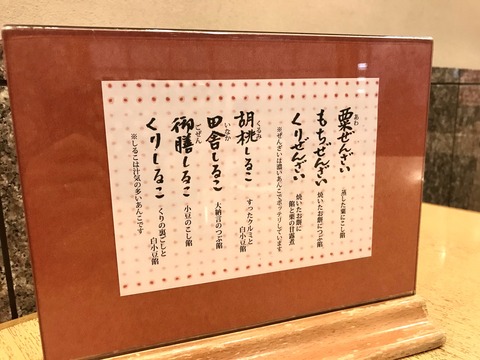 粟ぜんざい
あわ
蒸した粟にこし餡
もちぜんざい
焼いたお餅につぶ餡
くりぜんざい
焼いたお餅に
餡と栗の甘露煮
※ぜんざいは濃いあんこでボッテリしています
胡桃しるこ
くるみ
すったクルミと
白小豆餡
田舎しるこ
いなか
大納言のつぶ餡
御膳しるこ
ごぜん
小豆のこし餡
くりしるこ
くりの裏ごしと
白小豆餡
※しるこは汁気の多いあんこです